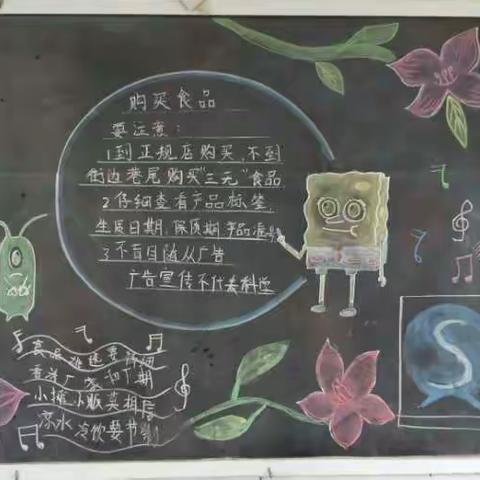 购买食品
要注意:
1到正规店购买,不到
街边巷尾购买"三无"食品
2仔细查看产品标签,
生产日期,保质期,产品
3不盲目随从广告
广告宣传不代表科学
食品挑选要仔细
看清厂家和日期
小摊小贩莫相信
凉水冷饮要节制
S